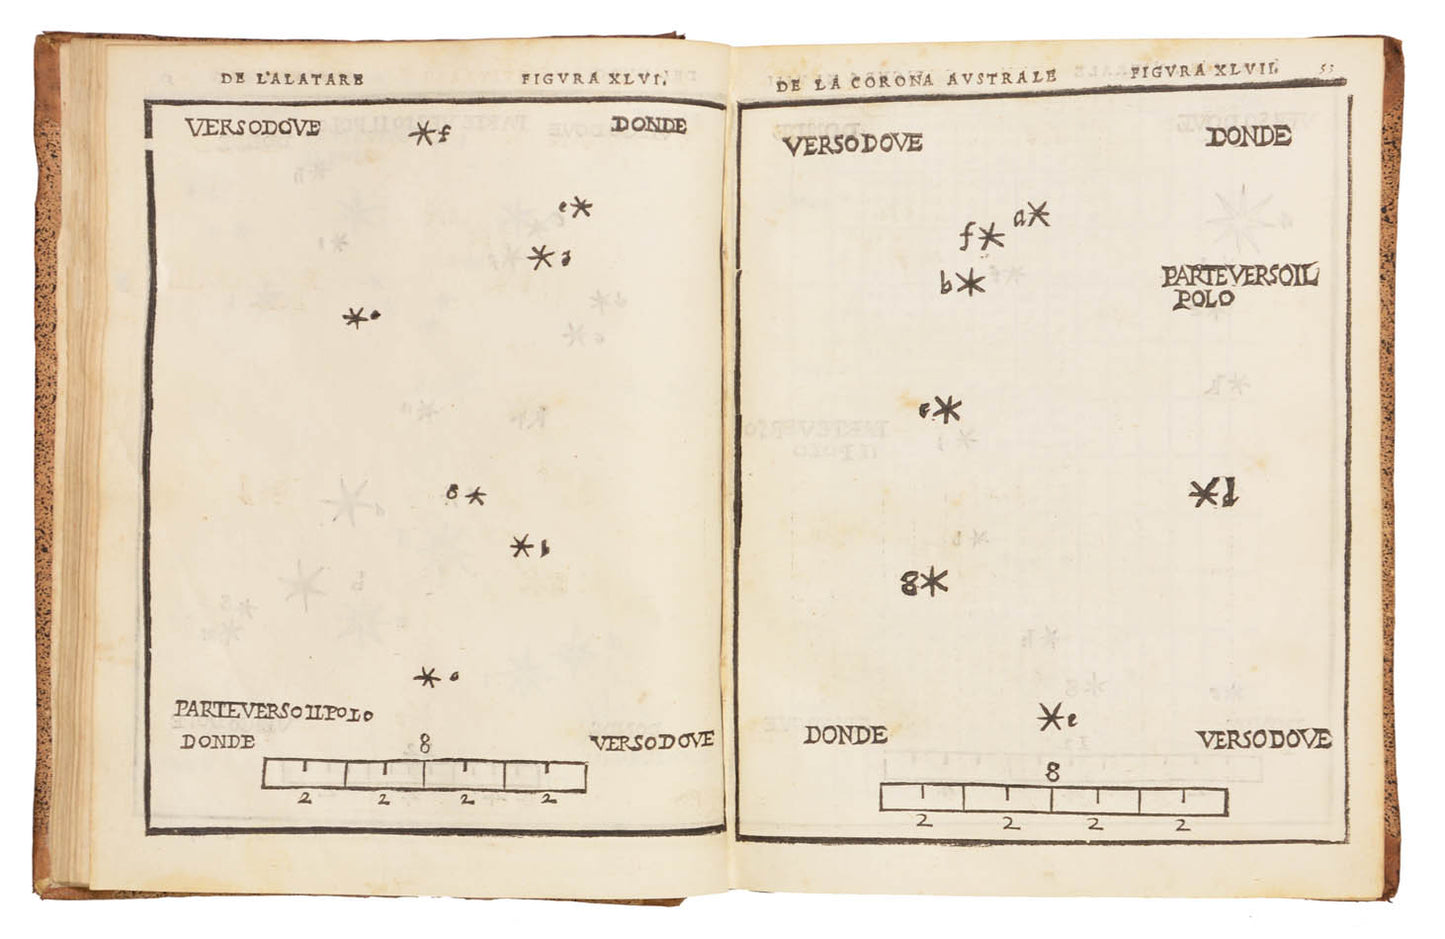 DE L'ALATARE FIGVRA XLVI.
VERSO DOVE f DONDE
e
8
PARTE VERSO IL POLO
DONDE 8 VERSO DOVE
2 2 2 2
DE LA CORONA AVSTRALE FIGVRA XLVII. 53
VERSO DOVE DONDE
a
f
b
PARTE VERSO IL
POLO
8
e
DONDE VERSO DOVE
8
2 2 2 2